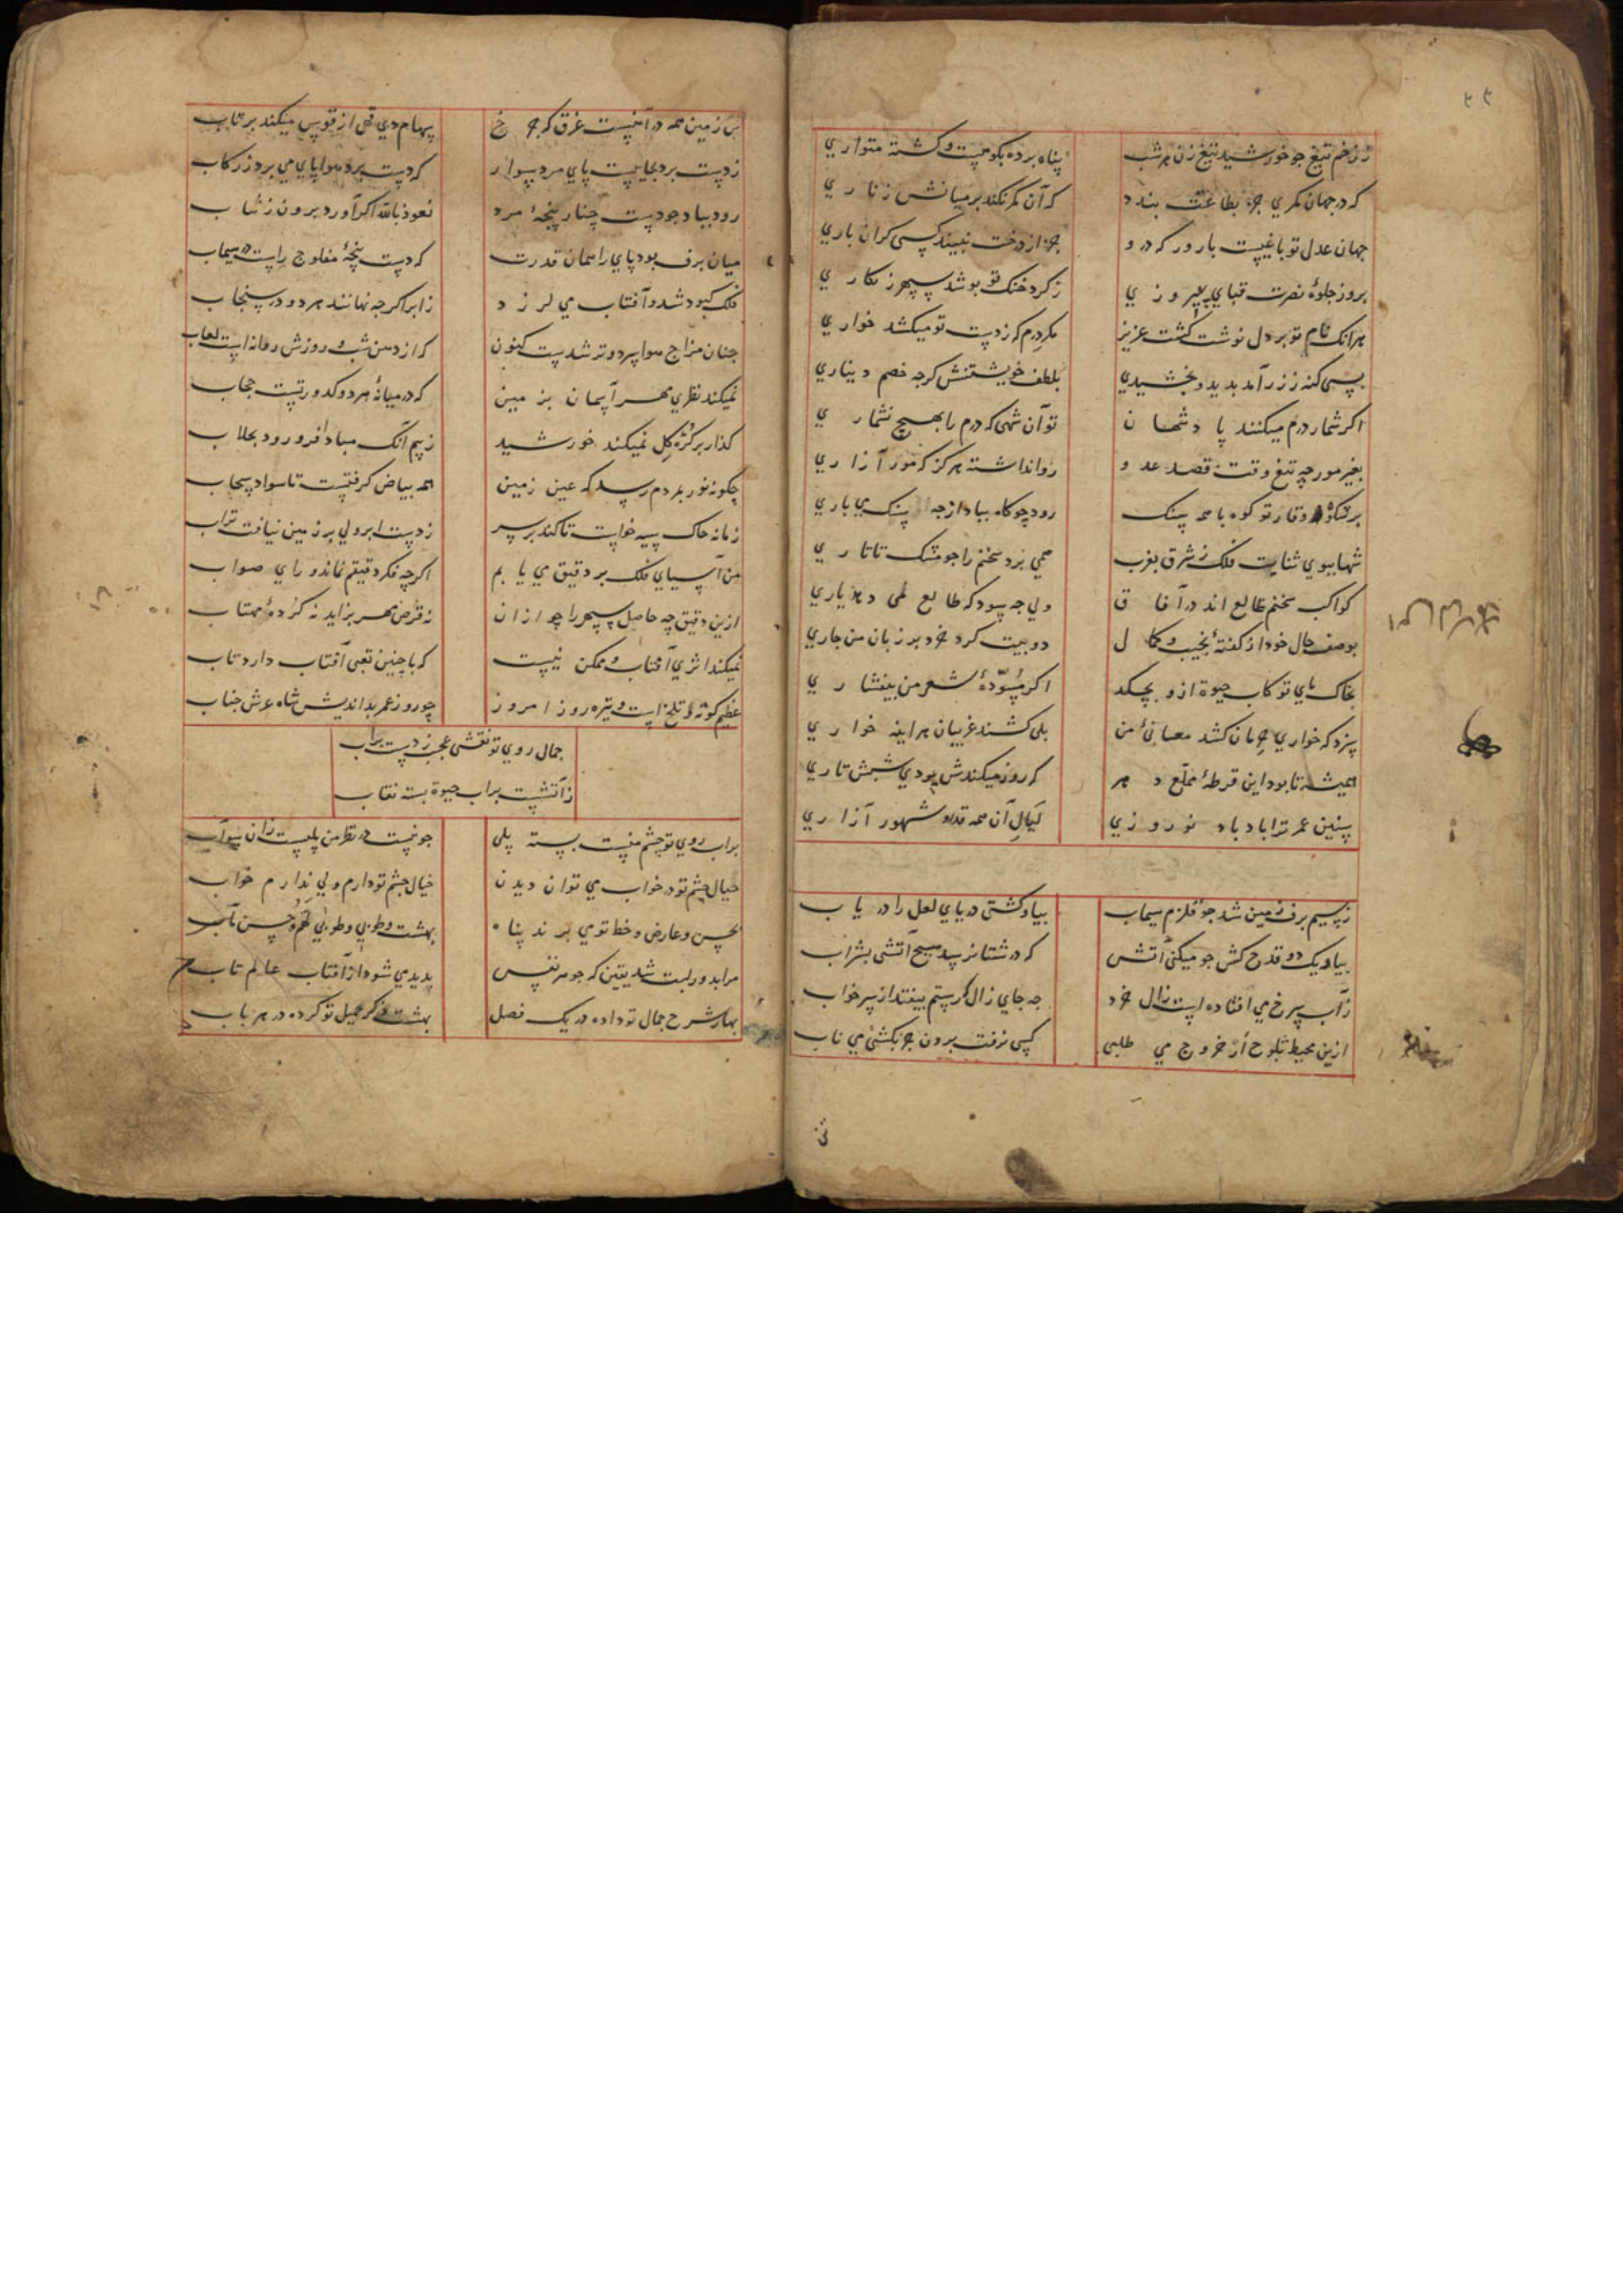 ز زخم تیغ جو خورشید تیغ زن هر شب پناه برده بکوهیست و کشته متواری
که در جهان کمری جز بطاعتت بندد که آن کمر نکند بر میانش زناری
جهان عدل تو باغیست بارور که درو جز از درخت نبیند کسی کران باری
بروز جلوهٔ نصرت قبای پیروزی ز کرد خنک تو بوشد سپهر زنکاری
هرانک نام تو بر دل نوشت کشت عزیز مکر درم که ز دست تو میکشد خواری
بسی کنه ز زر آمد بدید و بخشیدی بلطف خویشتنش کرجه خصم دیناری
اکر شمار درم میکنند پادشهان تو آن شهی که درم را بهیچ نشماری
بغیر مورچه تیغ وقت قصد عدو روا نداشته هرکز که مور آزاری
وقار تو کوه با همه سنک رود چو کاه بباد از چه سنک می باری
شها ببوی ثنایت فلک ز شرق بغرب همی برد سخنم را جو مشک تاتاری
کواکب سخنم طالع اند در آفاق ولی جه سود که طالع نمی دهد یاری
بوصف حال خود از کفتهٔ نجیب و کمال دو بیت کرد خرد بر زبان من جاری
بخاک پای تو کاب حیوة ازو بچکد اکر مسوّدهٔ شعر من بیفشاری
سزد که خواری حرمان کشد معانیٔ من بلی کشند غریبان هراینه خواری
همیشه تا بود این قرطهٔ ملمع دهر که روز میکندش بودی شبش تاری
سنین عمر ترا باد باد نوروزی لیال آن همه قدر و شهور آزاری
ز سیم برف زمین شد جو قلزم سیماب بیا و کشتی دریای لعل را دریاب
بیا و یک دو قدح کش جو میکنی آتش که در شتا نرسد هیچ آتشی بشراب
زآب سرخ می افتاده است زال خرد جه جای زال که رستم بیفتد از سر خواب
ازین محیط بلوح ار خروج می طلبی کسی نرفت برون جز بکشتیٔ می ناب
بس زمین همه در آهنیست غرق که چرخ سهام دی تهی از قوس میکند برتاب
ز دست برد بجاییست پای مرد سوار که دست برد هوا پای می برد ز رکاب
رود بباد جو دست چنار پنجهٔ مرد نعوذ بالله اکر آورد برون ز ثیاب
میان برف بود پای را همان قدرت که دست پنجهٔ مفلوج راست در سیماب
فلک کبود شد و آفتاب می لرزد ز ابر اکرچه نهانند هر دو در سنجاب
جنان مزاج هوا سرد و تر شدست کنون که از دهن شب و روزش روانه است لعاب
نمیکند نظری مهر آسمان بزمین که در میانهٔ هر دو کدورتست حجاب
کذار بر کرهٔ کل نمیکند خورشید ز بیم آنک مبادا فرو رود بخلاب
چکونه نور بمردم رسد که عین زمین همه بیاض کرفتست تا سواد سحاب
زمانه خاک سیه خواست تا کند بر سر ز دست ابر ولی بر زمین نیافت تراب
من آسیای فلک بر دقیق می یابم اکرچه فکر دقیقم نماند و رای صواب
ازین دقیق چه حاصل سپهر را چو ازان ز قرص مهر بزاید نه کردهٔ مهتاب
نمیکند اثری آفتاب و ممکن نیست که با چنین تعبی آفتاب دارد تاب
عظیم کوته و تلخ است و تیره روز امروز چو روز عمر بداندیش شاه عرش جناب
جمال روی تو نقشی عجب زدست برآب
ز آتشست بر آب حیوة بسته نقاب
بر آب روی تو چشم منست بسته پلی جو نیست در نظر من پلیست زان سوی آب
خیال چشم تو در خواب می توان دیدن خیال چشم تو دارم ولی ندارم خواب
بحسن و عارض و خط توی برند پناه بهشت و طوبی و طوبی لهم و حسن مآب
مرا بدور لبت شد یقین که جوهر نفس پدید می شود از آفتاب عالم تاب
بهار شرح جمال تو داده در یک فصل بهشت ذکر جمیل تو کرده در هر باب